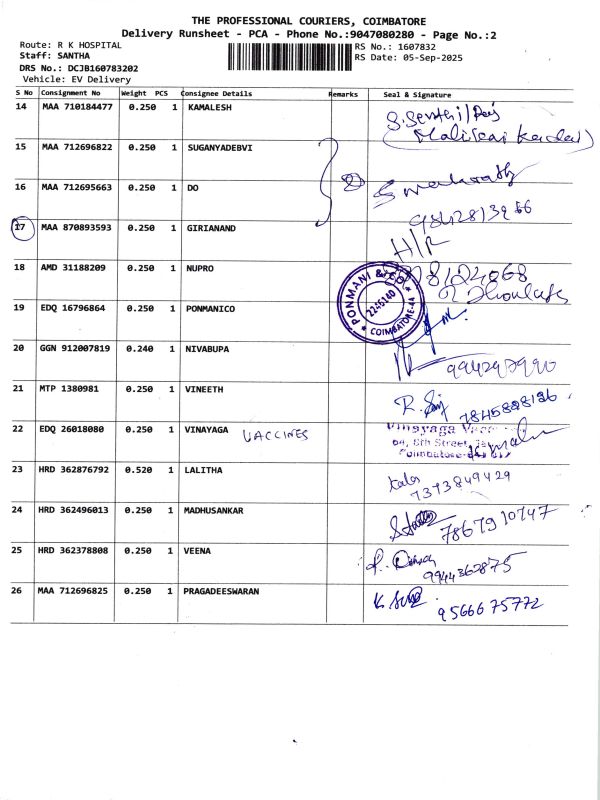 THE PROFESSIONAL COURIERS, COIMBATORE
Delivery Runsheet - PCA - Phone No.:9047080280 - Page No.:2
Route: R K HOSPITAL
RS No.: 1607832
Staff: SANTHA
RS Date: 05-Sep-2025
DRS No.: DCJB160783202
Vehicle: EV Delivery
S No Consignment No Weight PCS Consignee Details Remarks Seal & Signature
14 MAA 710184477 0.250 1 KAMALESH
15 MAA 712696822 0.250 1 SUGANYADEVVI
16 MAA 712695663 0.250 1 DO
17 MAA 870893593 0.250 1 GIRIANAND H/R
18 AMD 31188209 0.250 1 NUPRO
19 EDQ 16796864 0.250 1 PONMANICO
PONMANI & CO
COIMBATORE-44
20 GGN 912007819 0.240 1 NIVABUPA
21 MTP 1380981 0.250 1 VINEETH
22 EDQ 26018080 0.250 1 VINAYAGA VACCINES
Vinayaga
8th Street,
Coimbatore
23 HRD 362876792 0.520 1 LALITHA
7373849429
24 HRD 362496013 0.250 1 MADHUSANKAR
7867910747
25 HRD 362378808 0.250 1 VEENA
9944362875
26 MAA 712696825 0.250 1 PRAGADEESWARAN
9566675772